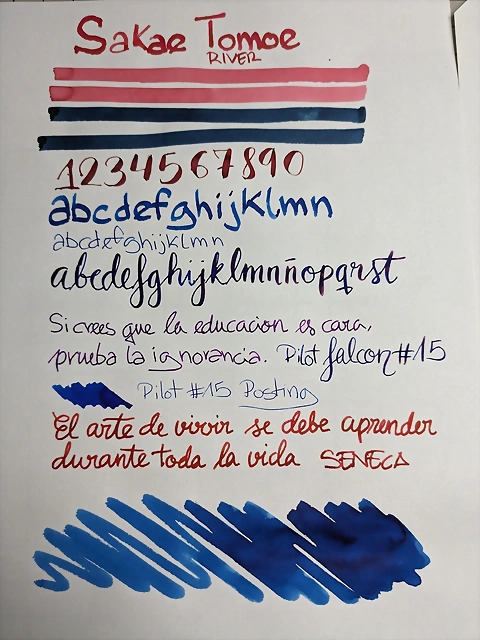 Sakae Tomoe
RIVER
1234567890
abcdefghijklmn
abcdefghijklmn
abcdefghijklmnñopqrst
Si crees que la educacion es cara,
prueba la ignorancia. Pilot falcon #15
Pilot #15 Posting
El arte de vivir se debe aprender
durante toda la vida SENECA